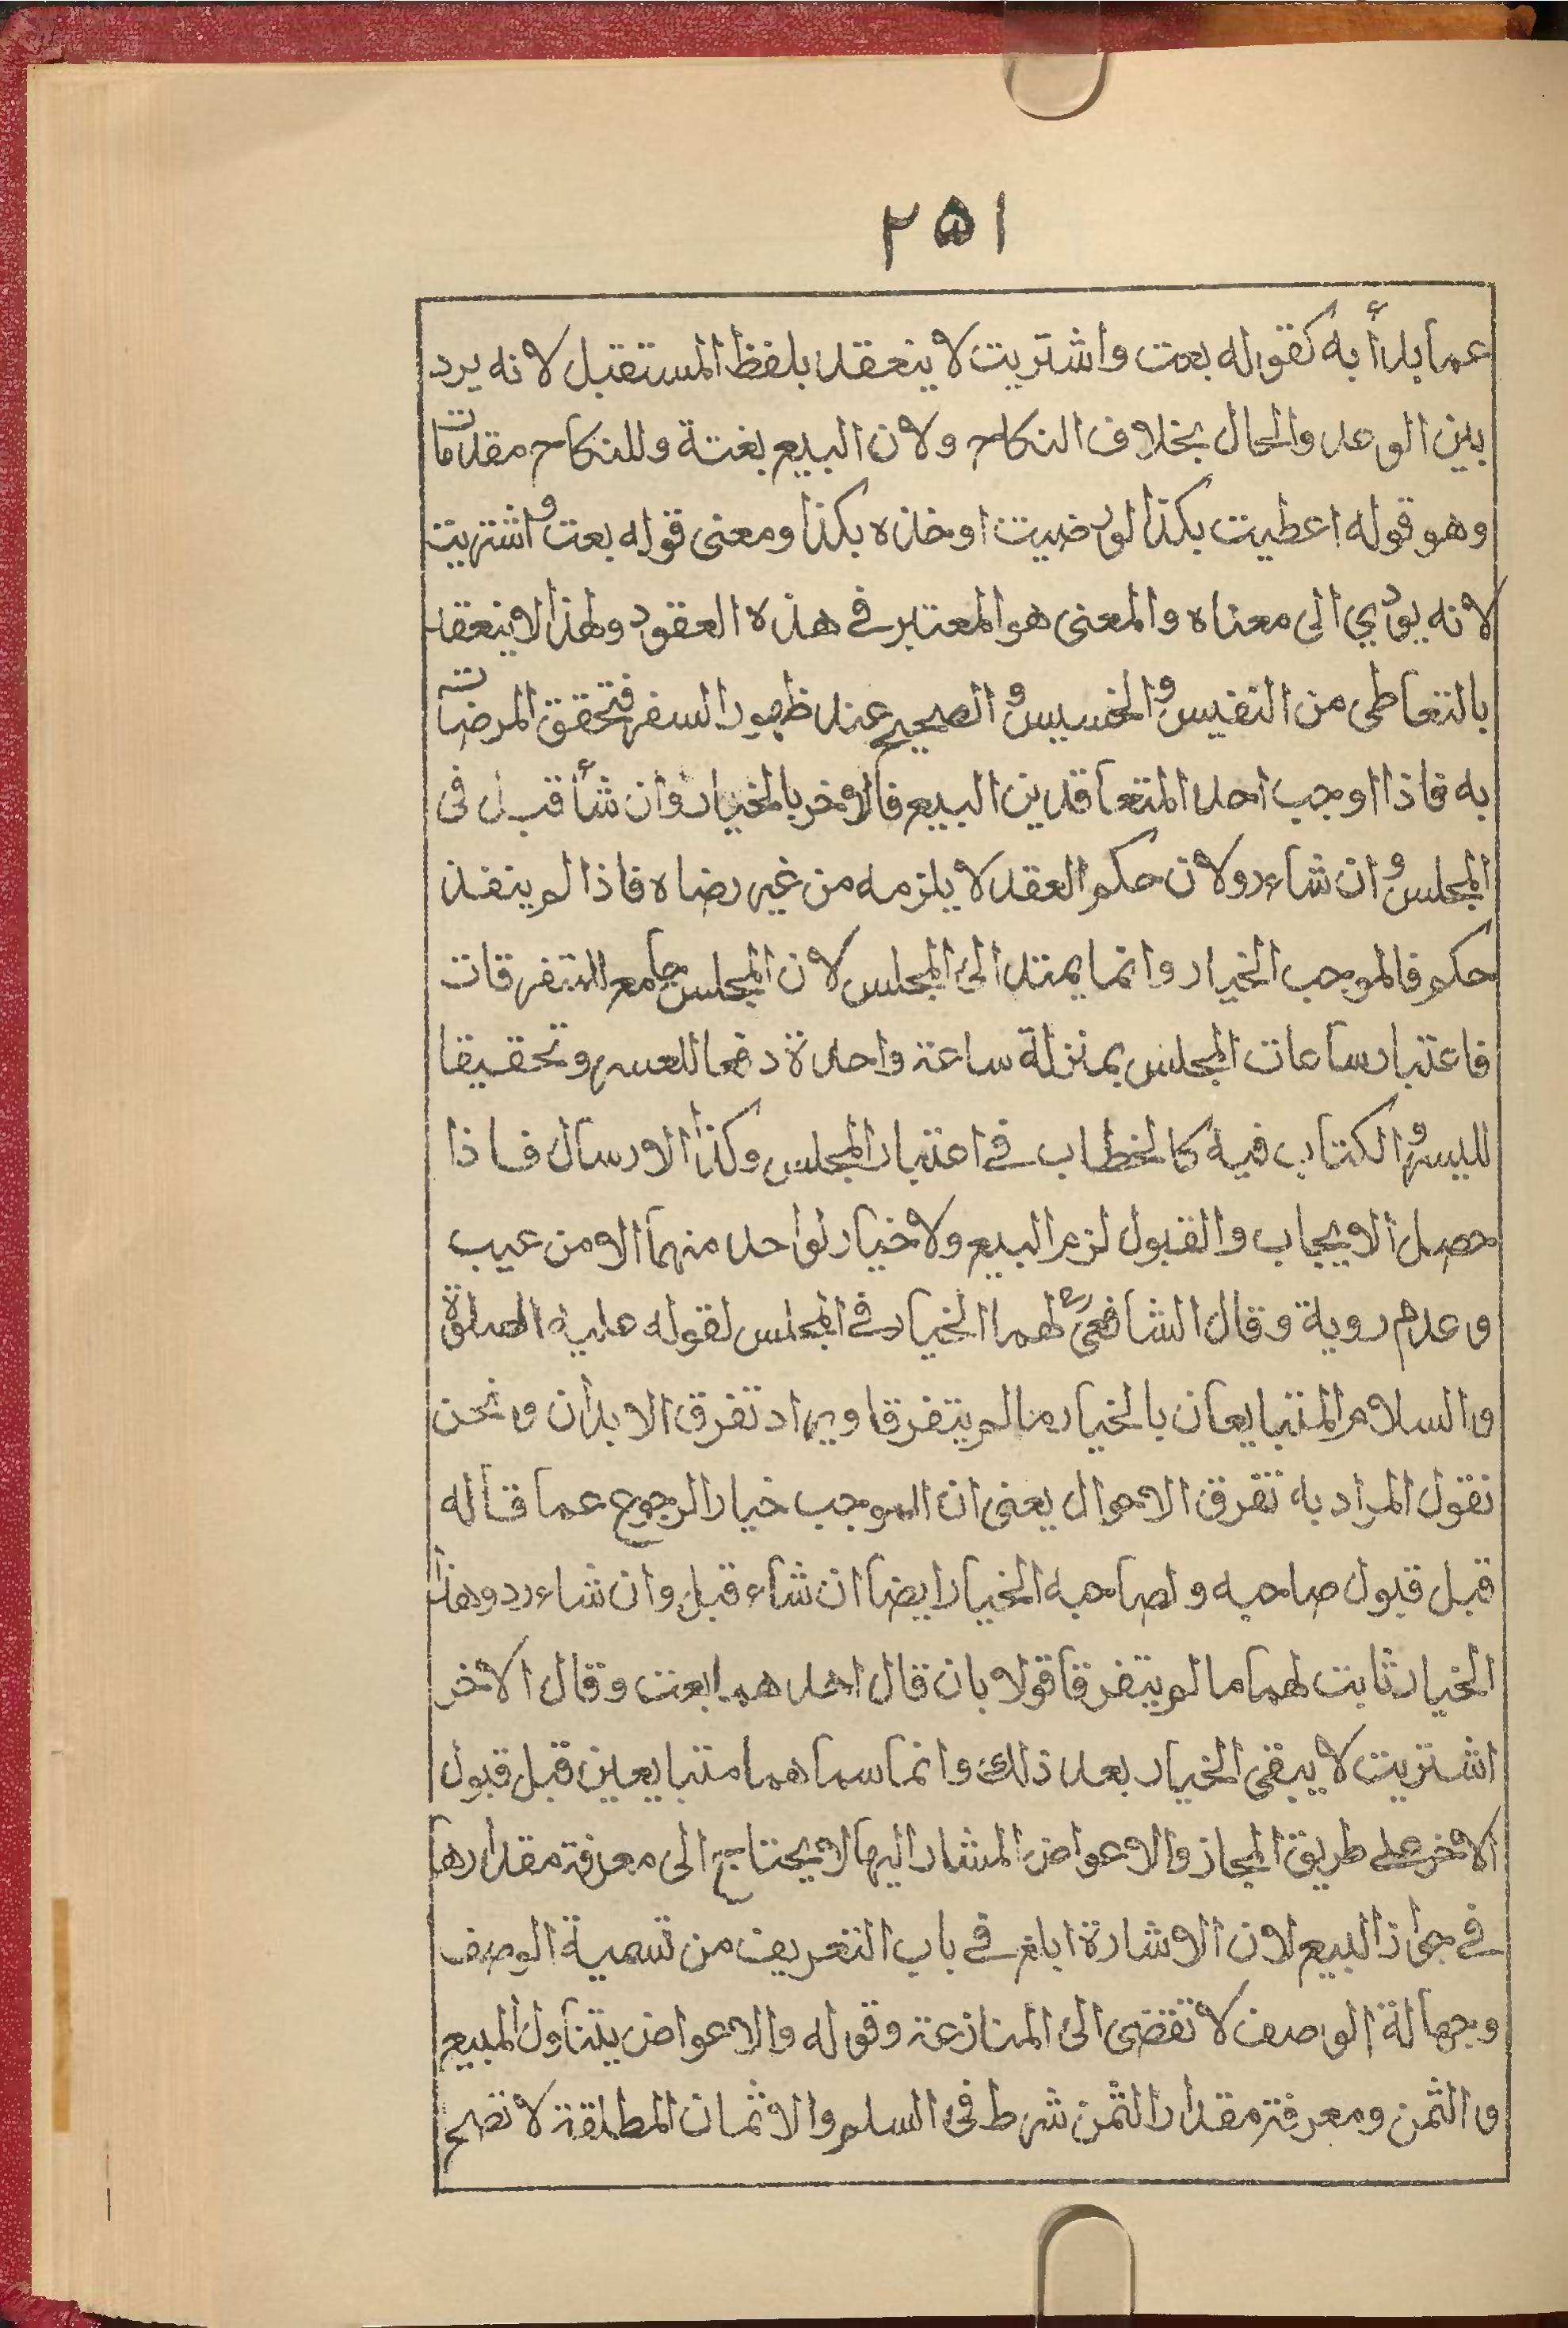 ٢٥١
عما بدأ به كقوله بعت واشتريت لا ينعقد بلفظ المستقبل لانه يرد
بين الوعد والحال بخلاف النكاح ولان البيع بغتة وللنكاح مقدمات
وهو قوله اعطيت بكذا لو رضيت او خذه بكذا ومعنى قوله بعت واشتريت
لانه يؤدي الى معناه والمعنى هو المعتبر في هذه العقود ولهذا لا ينعقد
بالتعاطى من النفيس والخسيس والصحيح عند ظهور السفر فتحقق المرضات
به فاذا اوجب احد المتعاقدين البيع فالاخر بالخيار وان شأ قبل فى
المجلس وان شاء رد ولان حكم العقد لا يلزمه من غير رضاه فاذا لم ينفذ
حكم فالموجب الخيار وانما يمتد الى المجلس لان المجلس جامع للمتفرقات
فاعتبار ساعات المجلس بمنزلة ساعة واحدة دفعا للعسر وتحقيقا
لليسر والكتاب فيه كالخطاب في اعتبار المجلس وكذا الارسال فاذا
حصل الايجاب والقبول لزم البيع ولا خيار لواحد منهما الا من عيب
وعدم روية وقال الشافعى لهما الخيار في المجلس لقوله عليه الصلوة
والسلام المتبايعان بالخيار ما لم يتفرقا ويراد تفرق الابدان ونحن
نقول المراد به تفرق الاحوال يعنى ان الموجب خيار الرجوع عما قاله
قبل قبول صاحبه ولصاحبه الخيار ايضا ان شاء قبل وان شاء رد وهذا
الخيار ثابت لهما ما لم يتفرقا قولا بان قال احدهما بعت وقال الاخر
اشتريت لا يبقى الخيار بعد ذلك وانما سماهما متبايعين قبل قبول
الاخر على طريق المجاز والاعواض المشار اليها لا يحتاج الى معرفة مقدارها
في جواز البيع لان الاشارة ابلغ في باب التعريف من تسمية الوصف
وجهالة الوصف لا تفضى الى المنازعة وقوله والاعواض يتناول المبيع
والثمن ومعرفة مقدار الثمن شرط فى السلم والاثمان المطلقة لا تصح